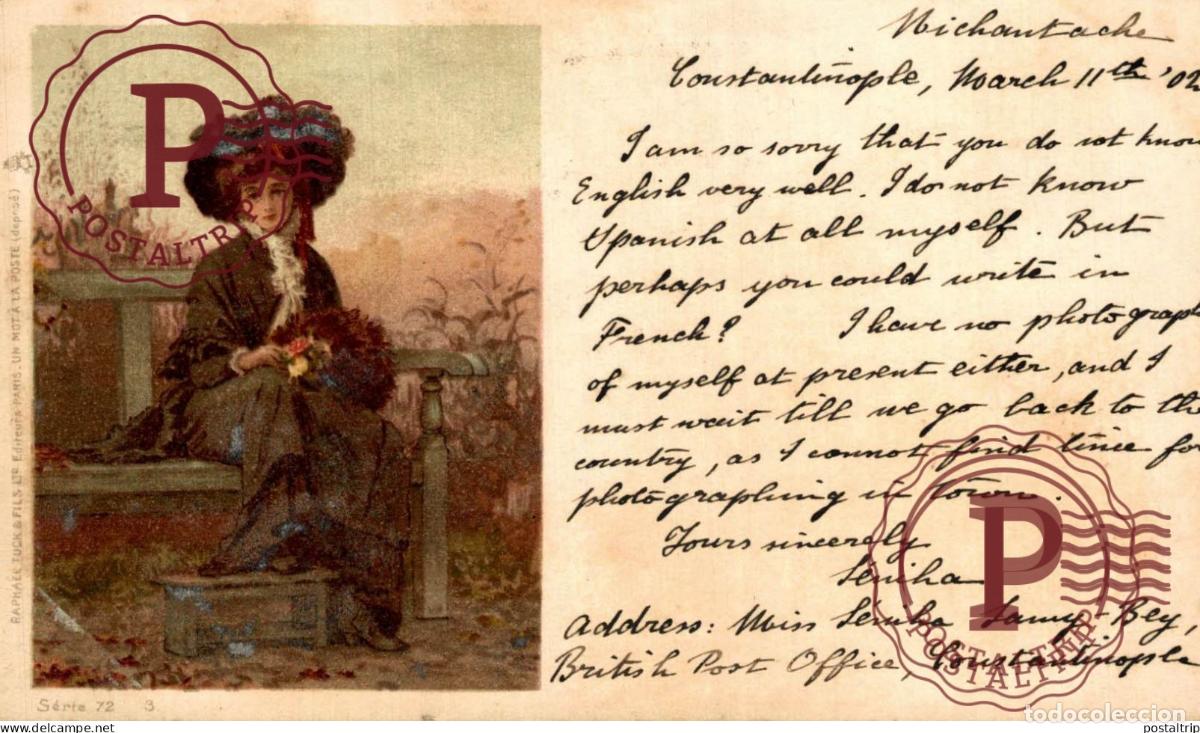 Nichantache
Constantinople, March 11th '02
I am so sorry that you do not know
English very well. I do not know
Spanish at all myself. But
perhaps you could write in
French? I have no photograph
of myself at present either, and I
must wait till we go back to the
country, as I cannot find time for
photographing in town.
Yours sincerely
Séniha
Address: Miss Séniha Samy Bey,
British Post Office, Constantinople
RAPHAEL TUCK & FILS, LTD Editeurs PARIS. UN MOT À LA POSTE (deposé)
Série 72 3
P
POSTALTRIP
P
POSTALTRIP
todocoleccion
www.delcampe.net
postaltrip